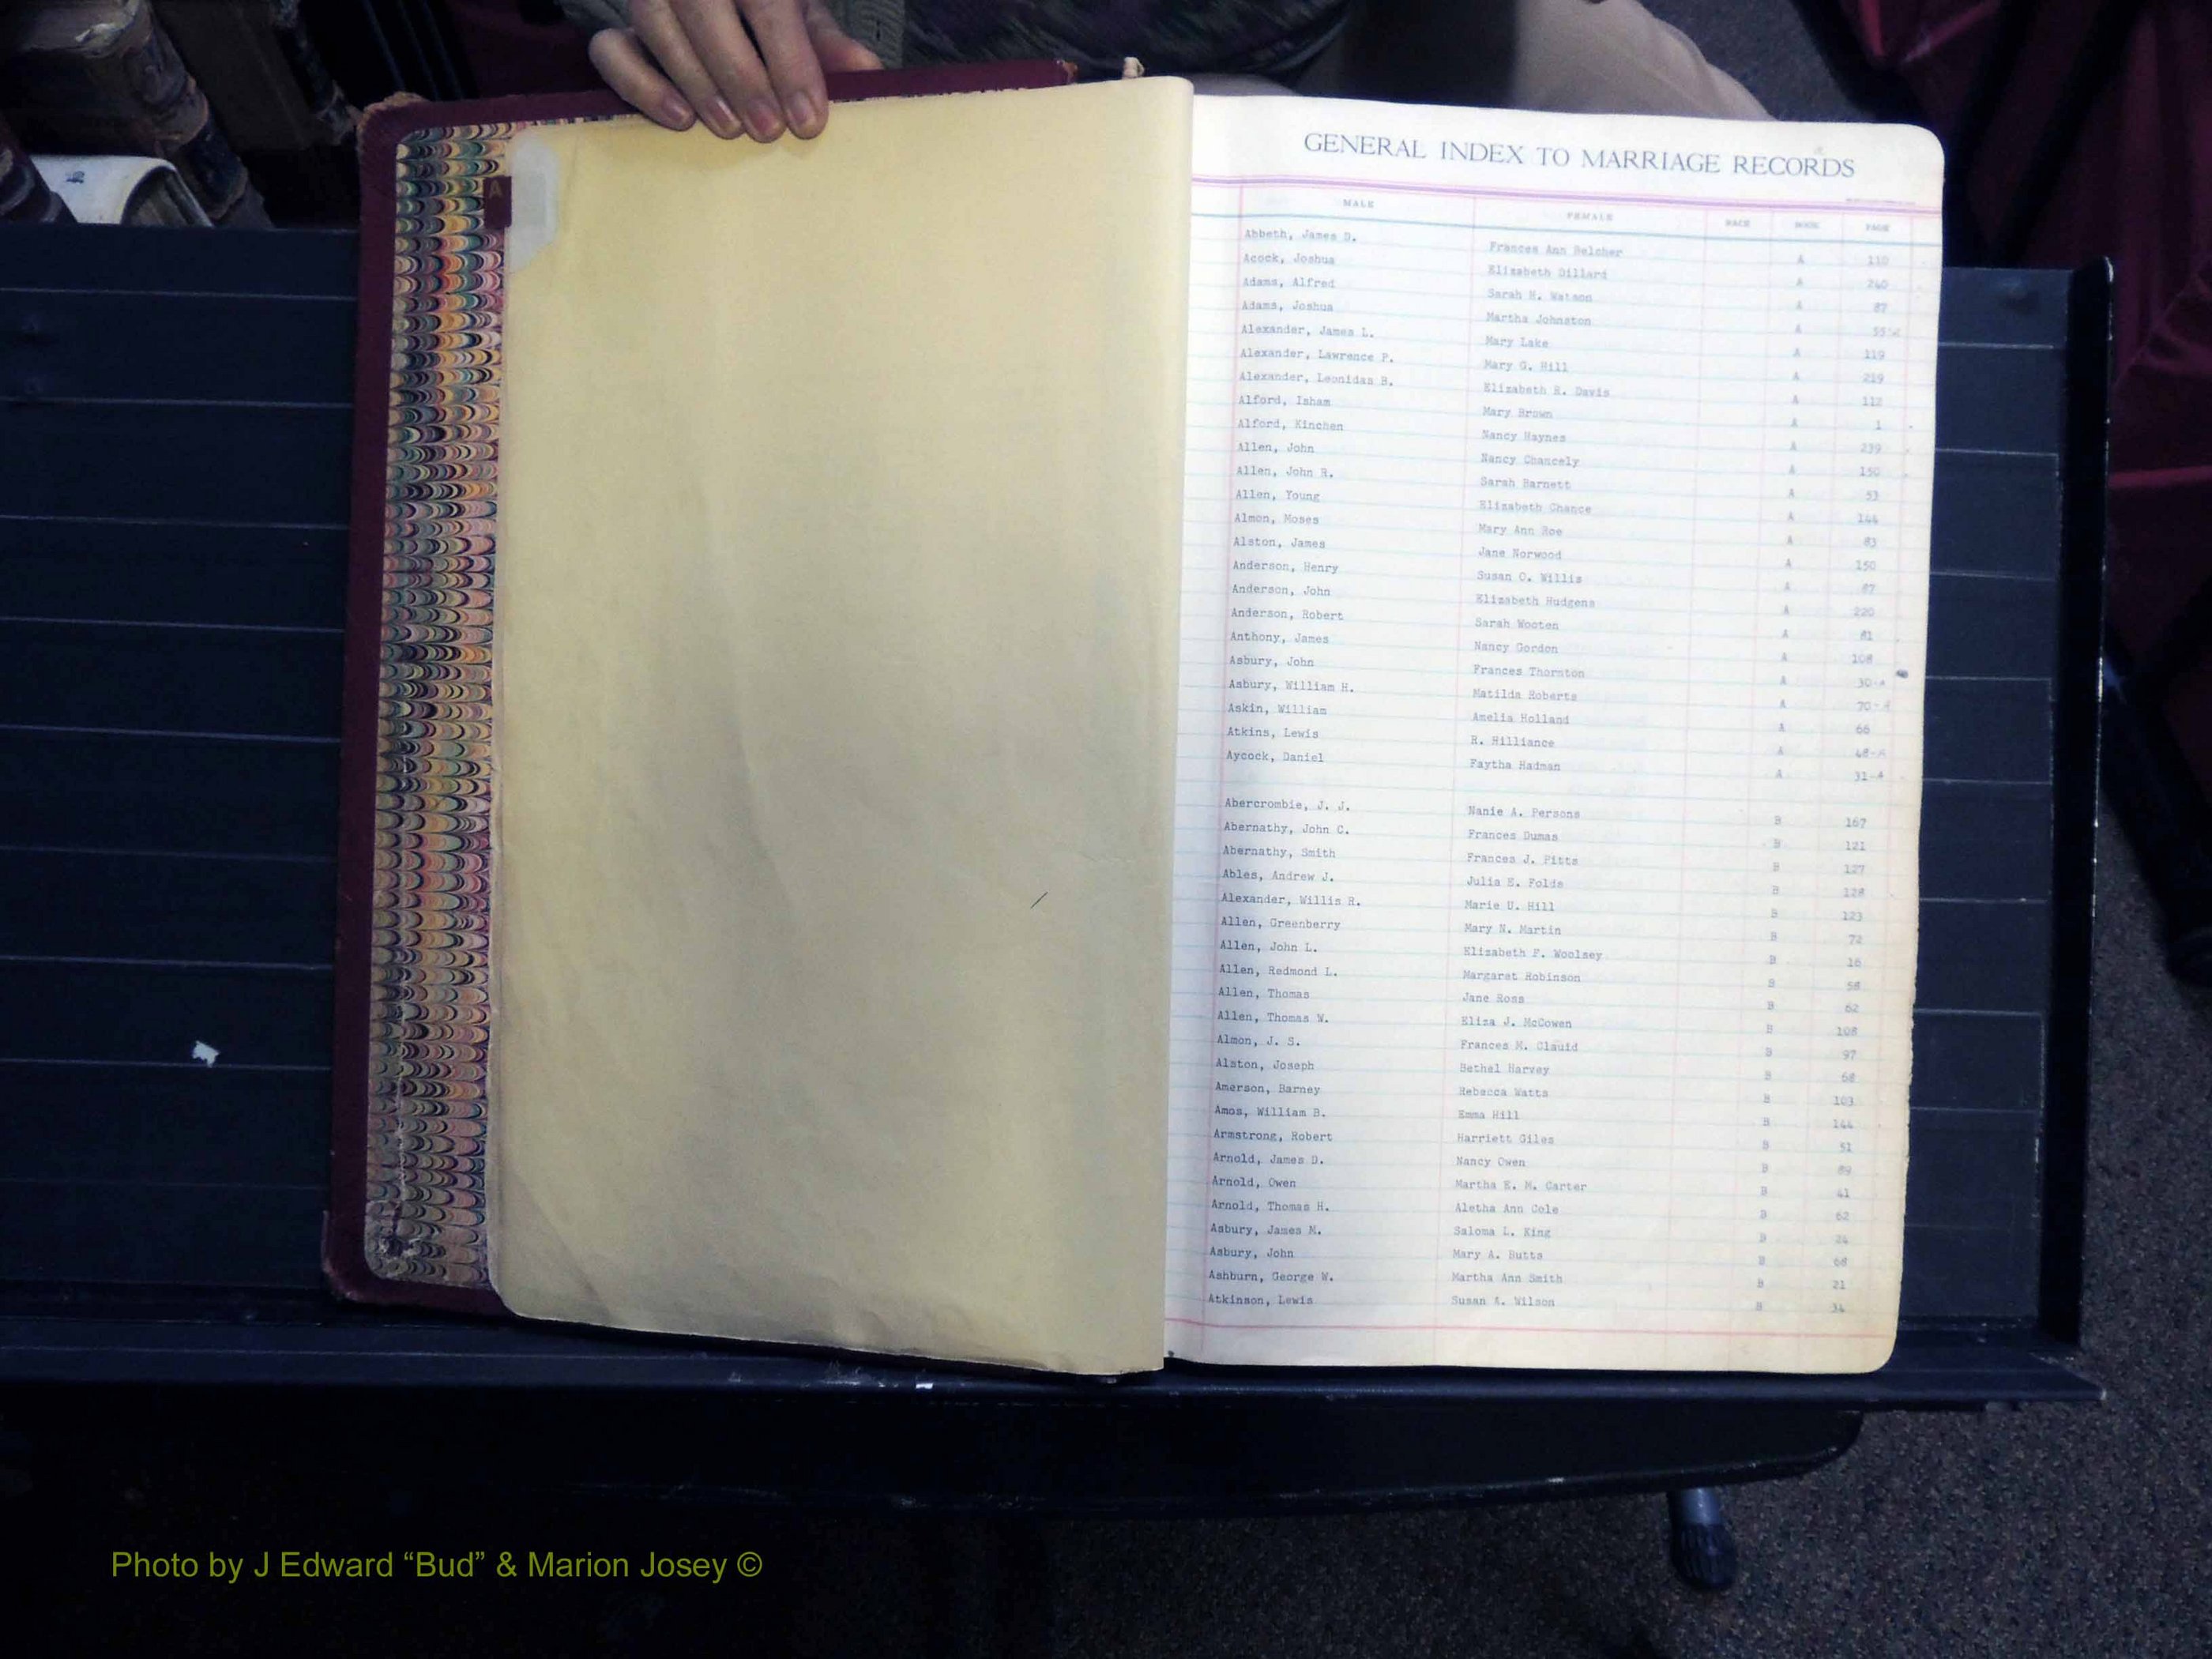 A
GENERAL INDEX TO MARRIAGE RECORDS
MALE FEMALE RACE BOOK PAGE
Abbeth, James D. Frances Ann Belcher A 110
Acock, Joshua Elizabeth Dillard A 240
Adams, Alfred Sarah H. Watson A 87
Adams, Joshua Martha Johnston A 55
Alexander, James L. Mary Lake A 119
Alexander, Lawrence P. Mary G. Hill A 219
Alexander, Leonidas B. Elizabeth R. Davis A 112
Alford, Isham Mary Brown A 1
Alford, Kinchen Nancy Haynes A 239
Allen, John Nancy Chancely A 150
Allen, John R. Sarah Barnett A 53
Allen, Young Elizabeth Chance A 144
Almon, Moses Mary Ann Roe A 83
Alston, James Jane Norwood A 150
Anderson, Henry Susan O. Willis A 87
Anderson, John Elizabeth Hudgens A 220
Anderson, Robert Sarah Wooten A 81
Anthony, James Nancy Gordon A 108
Asbury, John Frances Thornton A 30-A
Asbury, William H. Matilda Roberts A 70-A
Askin, William Amelia Holland A 66
Atkins, Lewis R. Hilliance A 48-A
Aycock, Daniel Faytha Hadman A 31-A
Abercrombie, J. J. Nanie A. Persons B 167
Abernathy, John C. Frances Dumas B 121
Abernathy, Smith Frances J. Pitts B 127
Ables, Andrew J. Julia E. Folds B 128
Alexander, Willis R. Marie U. Hill B 123
Allen, Greenberry Mary N. Martin B 72
Allen, John L. Elizabeth F. Woolsey B 16
Allen, Redmond L. Margaret Robinson B 58
Allen, Thomas Jane Ross B 62
Allen, Thomas W. Eliza J. McCowen B 108
Almon, J. S. Frances M. Clauid B 97
Alston, Joseph Bethel Harvey B 68
Amerson, Barney Rebecca Watts B 103
Amos, William B. Emma Hill B 144
Armstrong, Robert Harriett Giles B 51
Arnold, James D. Nancy Owen B 89
Arnold, Owen Martha E. M. Carter B 41
Arnold, Thomas H. Aletha Ann Cole B 62
Asbury, James M. Saloma L. King B 24
Asbury, John Mary A. Butts B 68
Ashburn, George W. Martha Ann Smith B 21
Atkinson, Lewis Susan A. Wilson B 34
Photo by J Edward “Bud” & Marion Josey ©